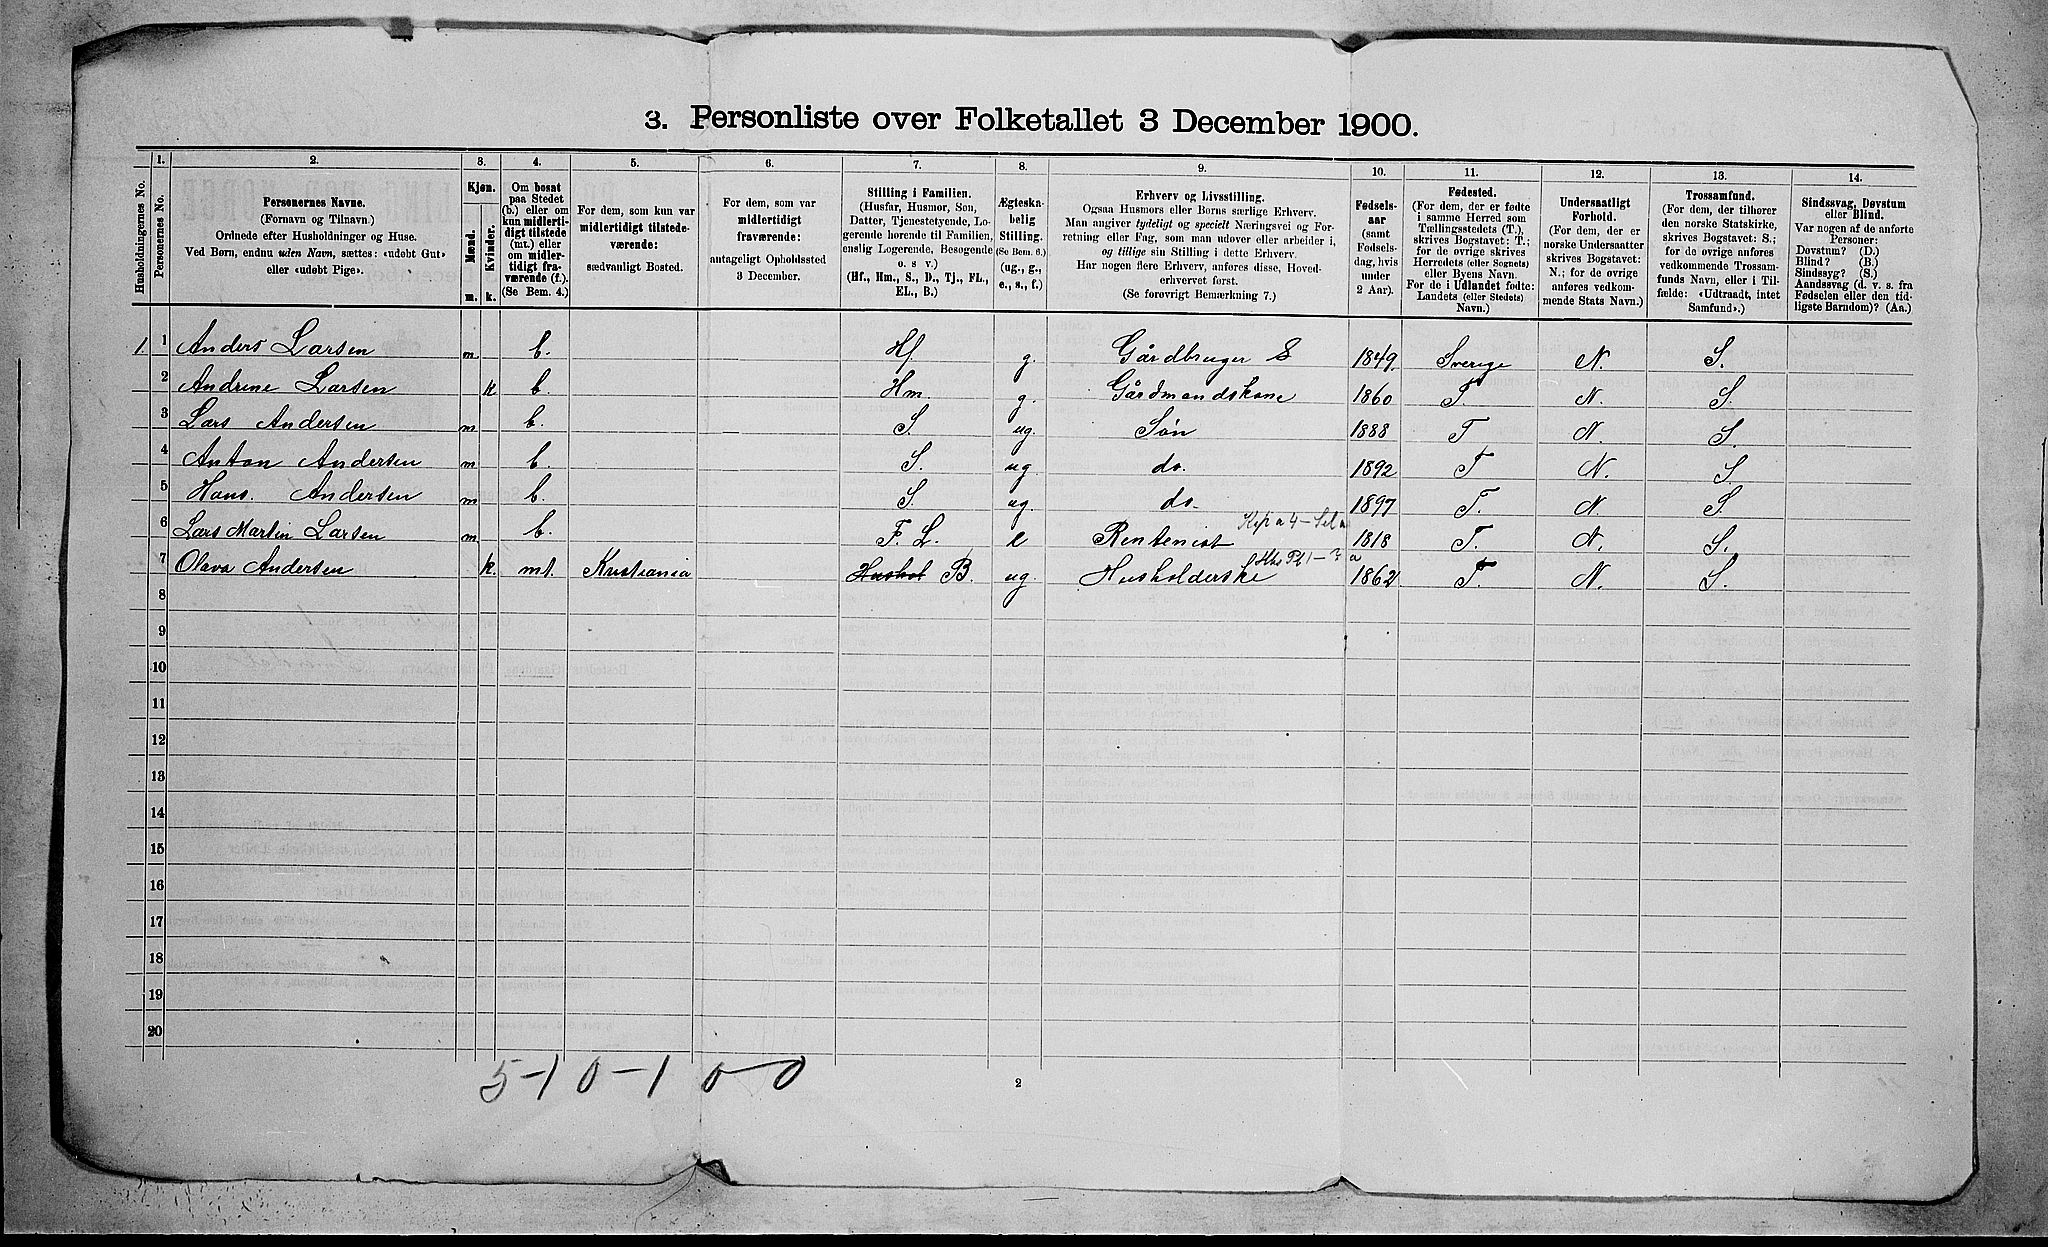 3. Personliste over Folketallet 3 December 1900.
Husholdningernes No.
1. Personernes No.
2. Personernes Navne. (Fornavn og Tilnavn.) Ordnede efter Husholdninger og Huse. Ved Børn, endnu uden Navn, sættes: «udøbt Gut» eller «udøbt Pige».
3. Kjøn. Mænd. m. Kvinder. k.
4. Om bosat paa Stedet (b.) eller om kun midlertidigt tilstede (mt.) eller om midlertidigt fraværende (f.). (Se Bem. 4.)
5. For dem, som kun var midlertidigt tilstedeværende: sædvanligt Bosted.
6. For dem, som var midlertidigt fraværende: antageligt Opholdssted 3 December.
7. Stilling i Familien. (Husfar, Husmor, Søn, Datter, Tjenestetyende, Logerende hørende til Familien, enslig Logerende, Besøgende o. s v.) (Hf., Hm., S., D., Tj., FL., EL., B.)
8. Ægteskabelig Stilling. (Se Bem. 6.) (ug., g., e., s., f.)
9. Erhverv og Livsstilling. Ogsaa Husmors eller Børns særlige Erhverv. Man angiver tydeligt og specielt Næringsvei og Forretning eller Fag, som man udøver eller arbeider i, og tillige sin Stilling i dette Erhverv. Har nogen flere Erhverv, anføres disse, Hovederhvervet først. (Se forøvrigt Bemærkning 7.)
10. Fødselsaar (samt Fødselsdag, hvis under 2 Aar).
11. Fødested. (For dem, der er fødte i samme Herred som Tællingsstedets (T.), skrives Bogstavet: T.; for de øvrige skrives Herredets (eller Sognets) eller Byens Navn. For de i Udlandet fødte: Landets (eller Stedets) Navn.)
12. Undersaatligt Forhold. (For dem, der er norske Undersaatter skrives Bogstavet: N.; for de øvrige anføres vedkommende Stats Navn.)
13. Trossamfund. (For dem, der tilhører den norske Statskirke, skrives Bogstavet: S.; for de øvrige anføres vedkommende Trossamfunds Navn, eller i Tilfælde: «Udtraadt, intet Samfund».)
14. Sindssvag, Døvstum eller Blind. Var nogen af de anførte Personer: Døvstum? (D.) Blind? (B.) Sindssyg? (S.) Aandssvag (d. v. s. fra Fødselen eller den tidligste Barndom)? (Aa.)
1. 1 Anders Larsen m b. Hf. g. Gårdbruger S 1849. Sverige N. S.
2 Andrine Larsen k b. Hm. g. Gårdmandskone 1860 T. N. S.
3 Lars Andersen m b. S. ug. Søn 1888 T N. S.
4 Anton Andersen m b. S. ug. do. 1892 T N. S.
5 Hans. Andersen m b. S. ug. do. 1897 T. N. S
6 Lars Martin Larsen m b. F. L. e Rentenist 1818 T. N. S.
7 Olava Andersen k. mt. Kristiania Hushol B. ug. Husholderske 1862 T. N. S.
8
9
10
11
12
13
14
15
16
17
18
19
20
5-1 0-1 0-0
2